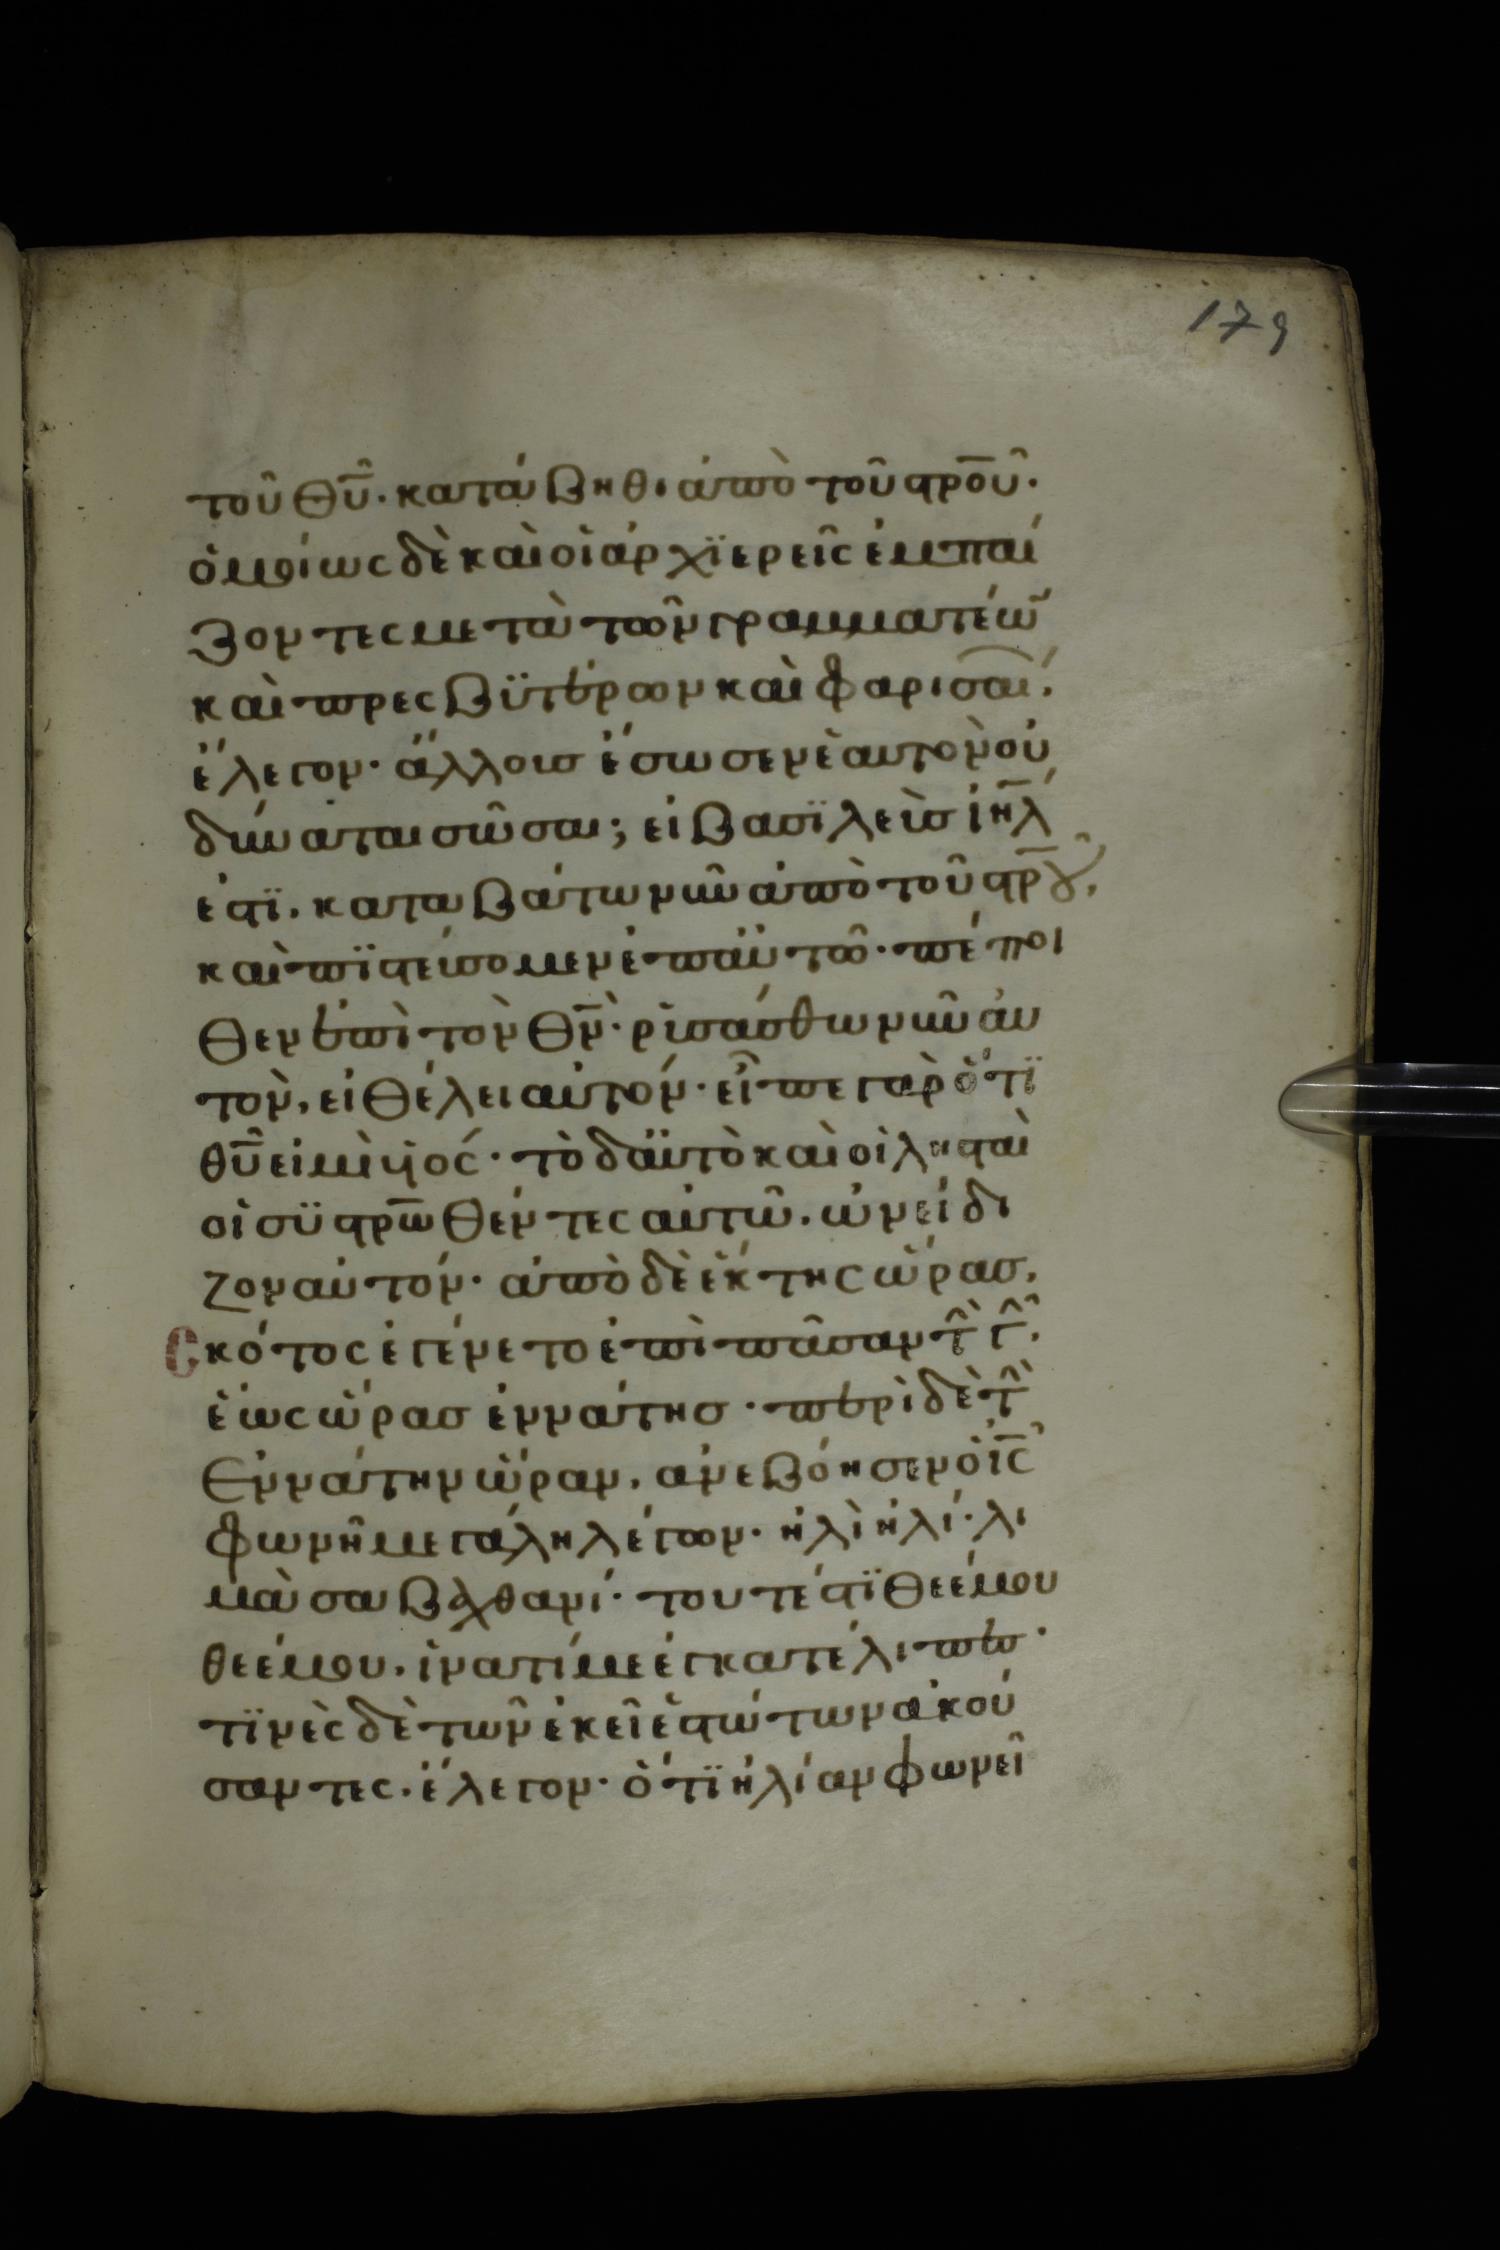 179
τοῦ θ̅υ̅. κατάβηθι ἀπὸ τοῦ σ̅ρ̅ο̅ῦ·
ὁμοίως δὲ καὶ οἱ ἀρχϊερεῖς ἐμπαί
ζοντες μετὰ τῶν γραμματέω̅
καὶ πρεσβϋτέρων καὶ φαρισαί.
ἔλεγον· ἄλλουσ ἔσωσεν ἑαυτὸν οὐ
δύναται σῶσαι; εἰ βασϊλεὺσ ἰ̅η̅λ̅
ἐστϊ. καταβάτω νῦν ἀπὸ τοῦ σ̅ρ̅οῦ,
καὶ πϊστεύσομεν ἐπ αὐτῶ· πέποι
θεν ἐπὶ τὸν θ̅ν̅· ρυσάσθω νῦν αὐ
τὸν, εἰ θέλει αὐτόν· εἶπε γὰρ ὅτϊ
θ̅υ̅ εἰμὶ υἱός· τὸ δ αὐτὸ καὶ οἱ λησταὶ
οἱ σϋστ̅ρ̅ω̅θέντες αὐτῶ. ὠνείδι
ζον αὐτόν· ἀπὸ δὲ ἕκτης ὥρασ,
Σκότος ἐγένετο ἐπὶ πᾶσαν τ̂ὴ γ̂ῆ.
ἕως ὥρασ ἐννάτησ· περὶ δὲ τ̂ὴ
ἐννάτην ὥραν, ἀνεβόησεν ὁ ι̅ς̅
φωνῆ μεγάλη λέγων· ἠλὶ ἠλί· λι
μὰ σαβαχθανί· τουτέστϊ θεέ μου
θεέ μου. ἱνατί με ἐγκατέλιπες·
τϊνὲς δὲ τῶν ἐκεῖ ἑστώτων ἀκού
σαντες. ἔλεγον· ὅτϊ ἠλίαν φωνεῖ